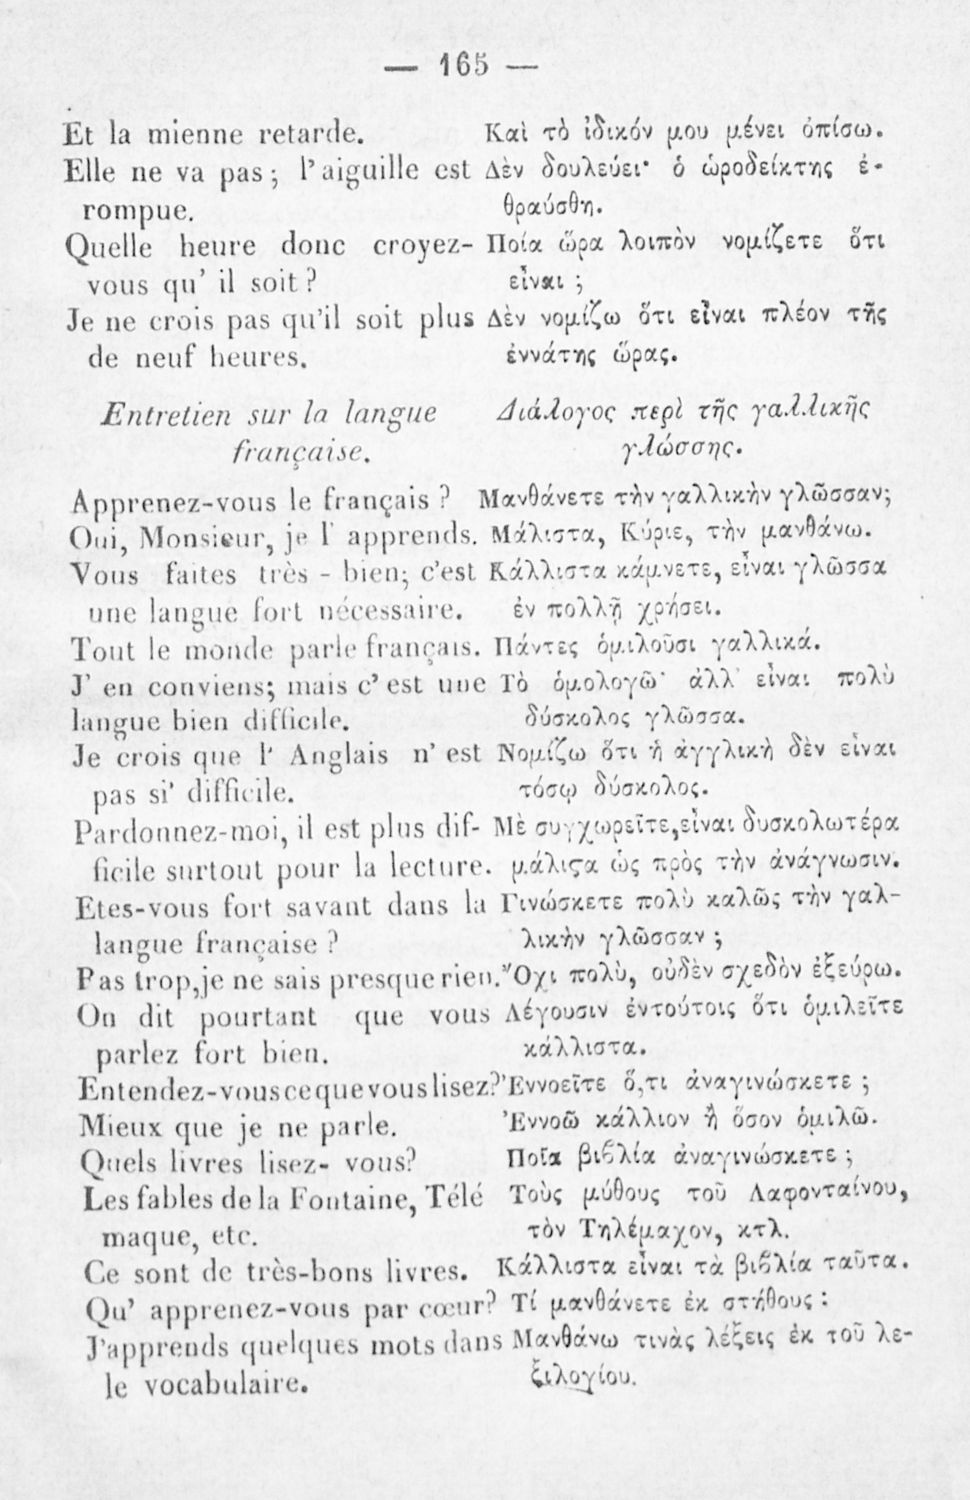 — 165 —
Et la mienne retarde. Καὶ τὸ ἰδικόν μου μένει ὀπίσω.
Elle ne va pas; l'aiguille est Δὲν δουλεύει· ὁ ὡροδείκτης ἐ-
rompue. θραύσθη.
Quelle heure donc croyez- Ποία ὥρα λοιπὸν νομίζετε ὅτι
vous qu' il soit? εἶναι ;
Je ne crois pas qu'il soit plus Δὲν νομίζω ὅτι εἶναι πλέον τῆς
de neuf heures. ἐννάτης ὥρας.
Entretien sur la langue Διάλογος περὶ τῆς γαλλικῆς
française. γλώσσης.
Apprenez-vous le français ? Μανθάνετε τὴν γαλλικὴν γλῶσσαν;
Oui, Monsieur, je l' apprends. Μάλιστα, Κύριε, τὴν μανθάνω.
Vous faites très - bien; c'est Κάλλιστα κάμνετε, εἶναι γλῶσσα
une langue fort nécessaire. ἐν πολλῇ χρήσει.
Tout le monde parle français. Πάντες ὁμιλοῦσι γαλλικά.
J' en conviens; mais c' est une Τὸ ὁμολογῶ· ἀλλ' εἶναι πολὺ
langue bien difficile. δύσκολος γλῶσσα.
Je crois que l' Anglais n' est Νομίζω ὅτι ἡ ἀγγλικὴ δὲν εἶναι
pas si' difficile. τόσῳ δύσκολος.
Pardonnez-moi, il est plus dif- Μὲ συγχωρεῖτε,εἶναι δυσκολωτέρα
ficile surtout pour la lecture. μάλιϛα ὡς πρὸς τὴν ἀνάγνωσιν.
Etes-vous fort savant dans la Γινώσκετε πολὺ καλῶς τὴν γαλ-
langue française ? λικὴν γλῶσσαν ;
Pas trop,je ne sais presque rien. Ὄχι πολὺ, οὐδὲν σχεδὸν ἐξεύρω.
On dit pourtant que vous Λέγουσιν ἐντούτοις ὅτι ὁμιλεῖτε
parlez fort bien. κάλλιστα.
Entendez-vous ce que vous lisez? Ἐννοεῖτε ὅ,τι ἀναγινώσκετε ;
Mieux que je ne parle. Ἐννοῶ κάλλιον ἢ ὅσον ὁμιλῶ.
Quels livres lisez- vous? Ποῖα βιβλία ἀναγινώσκετε ;
Les fables de la Fontaine, Télé Τοὺς μύθους τοῦ Λαφονταίνου,
maque, etc. τὸν Τηλέμαχον, κτλ.
Ce sont de très-bons livres. Κάλλιστα εἶναι τὰ βιβλία ταῦτα.
Qu' apprenez-vous par cœur? Τί μανθάνετε ἐκ στήθους :
J'apprends quelques mots dans Μανθάνω τινὰς λέξεις ἐκ τοῦ λε-
le vocabulaire. ξιλογίου.